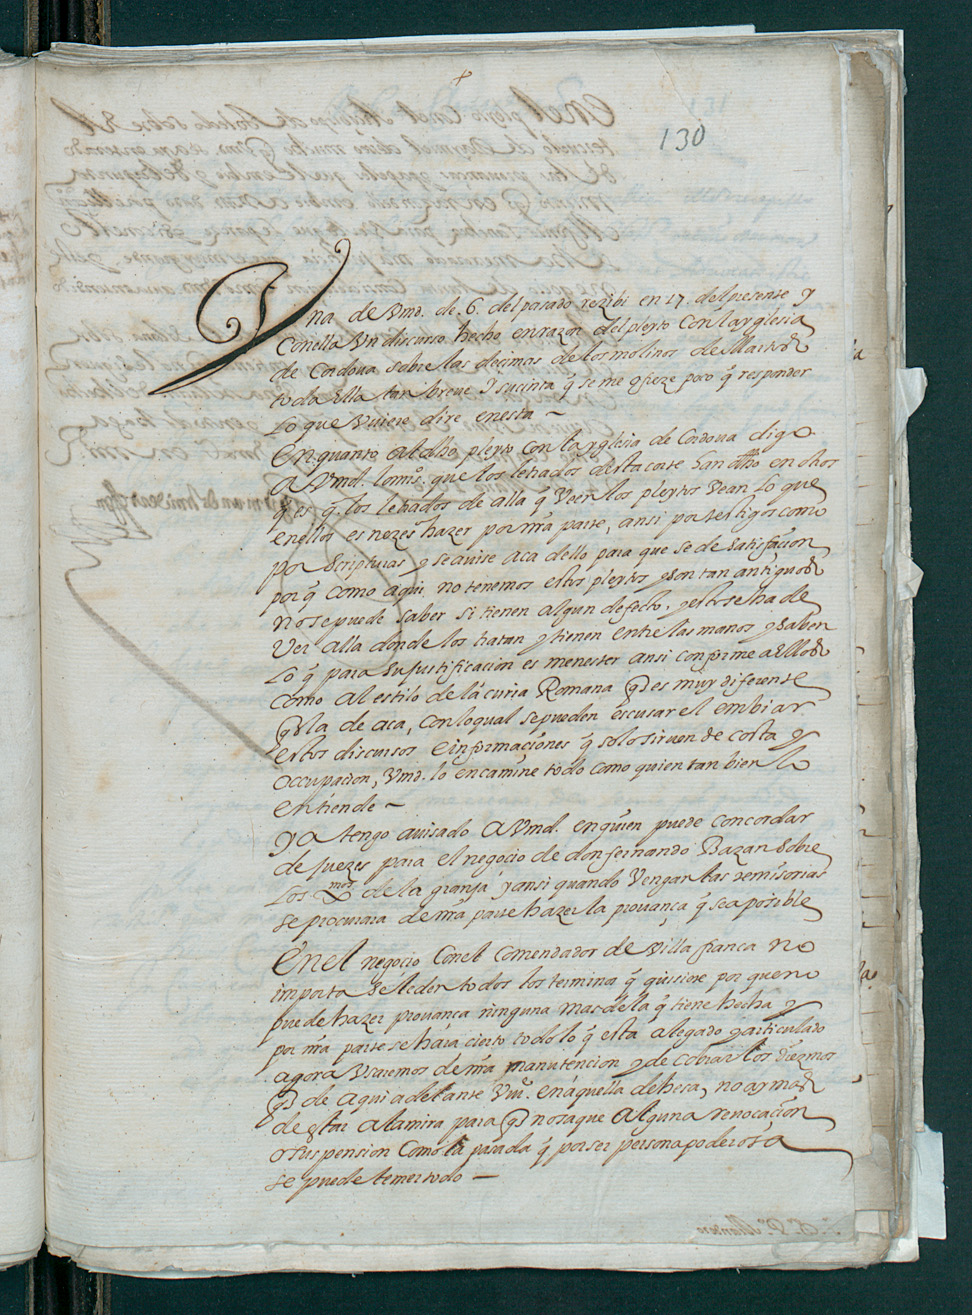 130
Una de Vmd. de 6. del pasado rezibi en 17. del presente y
con ella Un discurso hecho en razon del pleyto con la yglesia
de Cordoua sobre las decimas de los molinos de Martos
toda ella tan breue y sucinta q se me ofreze poco q responder
Lo que Vuiere dire en esta ~
En quanto al dho pleyto con la yglesia de Cordoua digo
a Vmd. lo mis.º que los letrados desta corte han dho en otros
q es q. los letrados de alla q Veen los pleytos Vean Lo que
en ellos es nezes.º hazer por nra parte, ansi por testigos como
por Scripturas y se auise aca dello para que se de Satisfacion
por q como aqui no tenemos estos pleytos y son tan antiguos
no se puede saber si tienen algun defecto, y esto se ha de
Ver alla donde los tratan y tienen entre las manos y saben
Lo q para su justificacion es menester ansi conforme a ellos
como al estilo de la curia Romana q es muy diferente
q la de aca, con lo qual se pueden escusar el embiar
estos discursos e informaçiones q solo siruen de costa y
occupacion, Vmd. lo encamine todo como quien tan bien lo
entiende ~
Ya tengo auisado a Vmd. en quien puede concordar
de Juezes para el negocio de don fernando Bazan sobre
Los Dmos de la granja y ansi quando Vengan las remisorias
se procurara de nra parte hazer la prouança q sea posible
En el negocio con el Comendador de Villa franca no
importa se le den todos los terminos q quisiere por que no
puede hazer prouança ninguna mas de la q tiene hecha y
por nra parte se hara cierto todo lo q esta alegado y articulado
agora Usaremos de nra manutencion y de cobrar los diezmos
q de aqui adelante Vu. en aquella dehesa, no ay mas
de estar a la mira para q no saque alguna reuocacion
o suspension como la pasada q por ser persona poderosa
se puede temer todo —